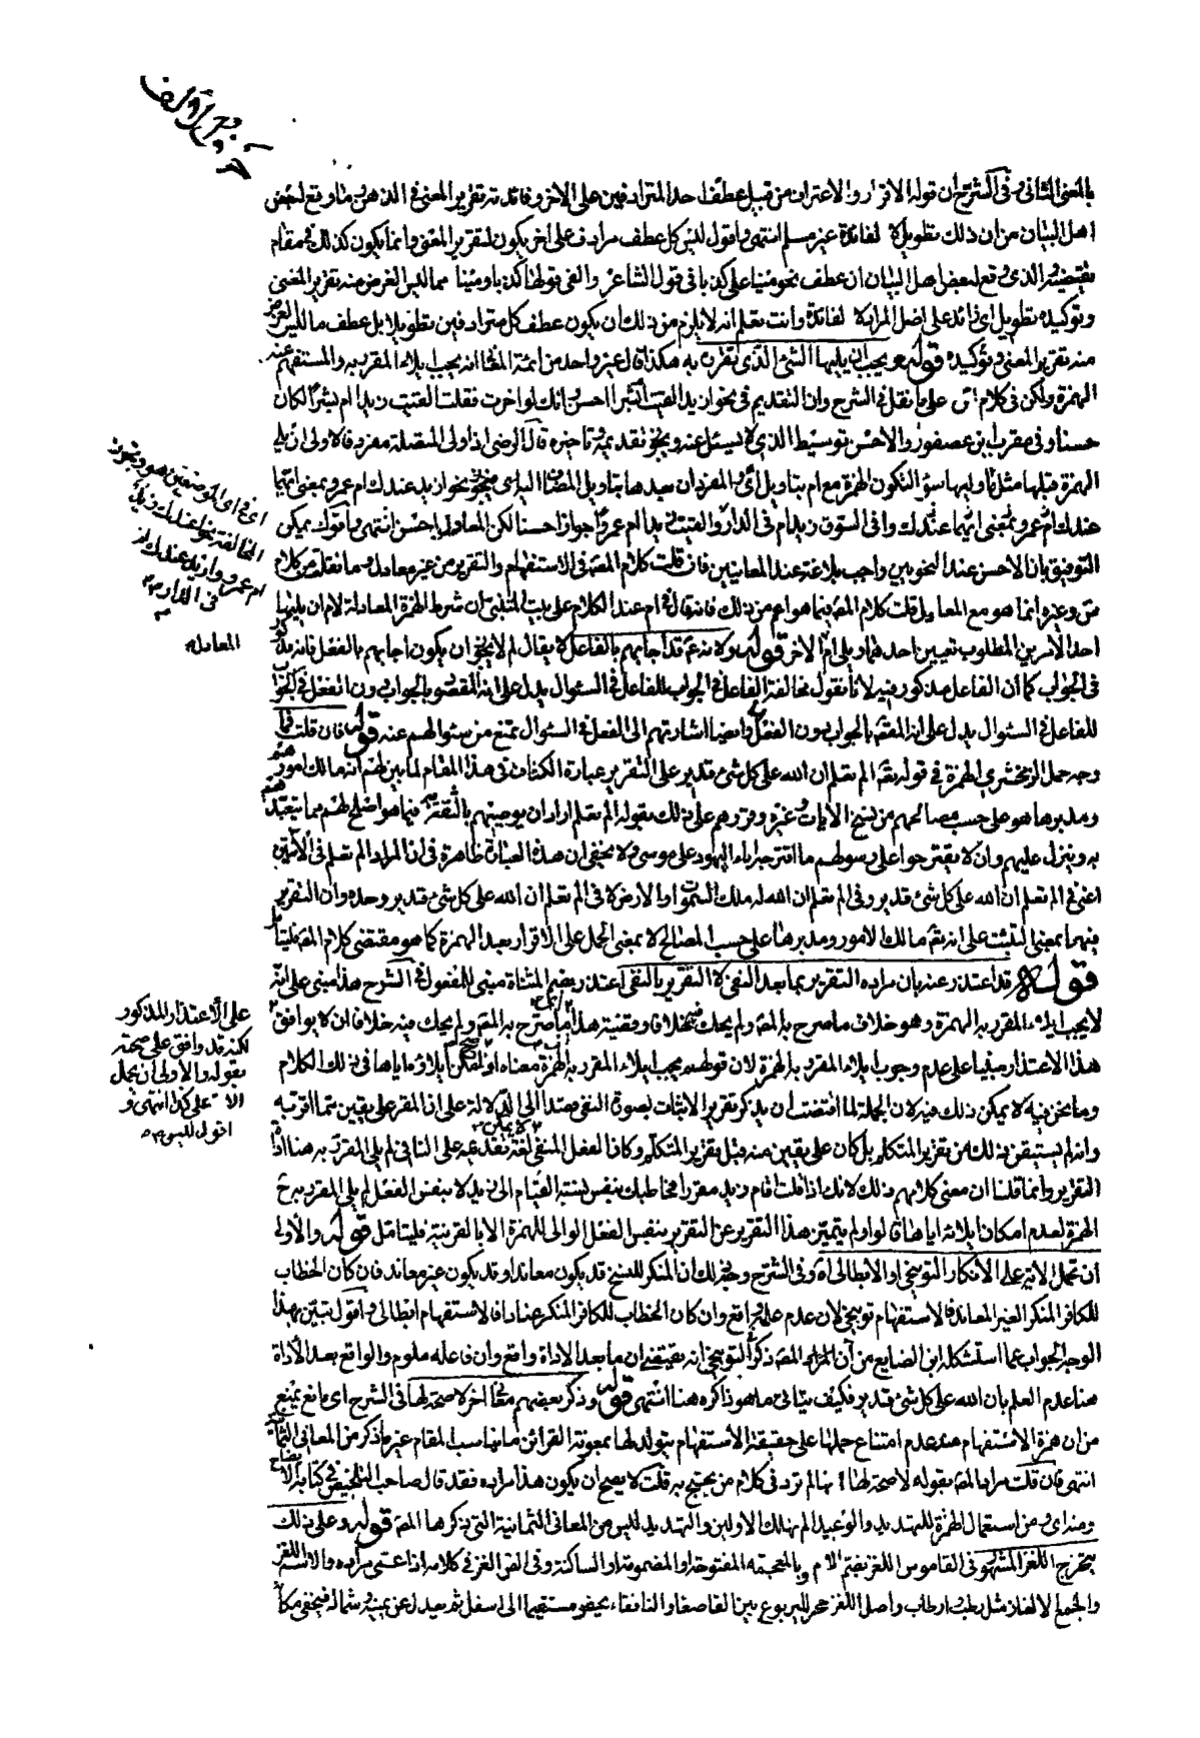 بالمعنى الثانى وفى الشرح ان قوله الاقرار والاعتراف من قبيل عطف احد المترادفين على الاخر وفائدته تقرير المعنى فى الذهن وما وقع لبعض
اهل البيان من ان ذلك تطويل لا لفائدة غير مسلم انتهى واقول ليس كل عطف مرادف على اخر يكون لتقرير المعنى وانما يكون كذلك فى مقام
يقتضيه والذى وقع لبعض اهل البيان ان عطف نحو مينا على كذبا فى قول الشاعر والفى قولها كذبا ومينا مما ليس الغرض منه تقرير المعنى
وتوكيده تطويل اى زائد على اصل المراد لا لفائدة وانت تعلم انه لا يلزم من ذلك ان يكون عطف كل مترادفين تطويلا بل عطف ما ليس الغرض
منه تقرير المعنى وتوكيده قوله ويجب ان يليها الشئ الذى تقرره به هكذا قال غير واحد من ائمة النحاة انه يجب ايلاء المقرر به والمستفهم عنه
الهمزة ولكن فى كلام س على ما نقل فى الشرح وان التقديم فى نحو ازيدا لقيت ام بشرا احسن وانك لو اخرت فقلت القيت زيدا ام بشرا لكان
حسنا وفى مقرب ابن عصفور والاحسن توسيط الذى لا يسئل عنه ويجوز تقديمه وتاخيره قال الرضى اذا ولى المتصلة مفرد فالاولى ان يلى
الهمزة قبلها مثل ما وليها سواء لتكون الهمزة مع ام بتاويل اى والمفردان بعدها بتاويل المضاف اليه اى فنحو ازيد عندك ام عمرو بمعنى ايهما
عندك ام عمرو بمعنى ايهما عندك وافى السوق زيد ام فى الدار والقيت زيدا ام عمرا جوازا حسنا لكن المعادل احسن انتهى واقول يمكن
التوفيق بان الاحسن عند النحويين واجب بلاغة عند المعانيين فان قلت كلام المصنف فى الاستفهام والتقرير من غير معادل وما نقلته من كلام
س وغيره انما هو مع المعادل قلت كلام المصنف فيما هو اعم من ذلك فانه قال فى ام عند الكلام على بيت المتنبى ان شرط الهمزة المعادلة لام ان يليها
احد الامرين المطلوب تعيين احدهما ويلى ام الاخر قوله ولانه عم قد اجابهم بالفاعل لا يقال لم لا يجوز ان يكون اجابهم بالفعل فانه مذكور
فى الجواب كما ان الفاعل مذكور فيه لانا نقول مخالفة الفاعل فى الجواب للفاعل فى السئوال يدل على انه المقصود بالجواب دون الفعل فى الجواب
للفاعل فى السئوال يدل على انه المقصود بالجواب دون الفعل وايضا اشارتهم الى الفعل فى السئوال تمنع من سئوالهم عنه قوله فان قلت ما
وجه حمل الزمخشرى الهمزة فى قوله تعالى الم تعلم ان الله على كل شئ قدير على التقرير عبارة الكشاف فى هذا المقام لما بين لهم انه مالك امورهم
ومدبرها هو على حسب مصالحهم من نسخ الايات وغيره وقررهم على ذلك بقوله الم تعلم اراد ان يوصيهم بالثقة به فيما هو اصلح لهم مما يتعبدهم
به وينزل عليهم وان لا يقترحوا على رسولهم ما اقترحه اباء اليهود على موسى ولا يخفى ان هذه العبارة ظاهرة فى ان المراد الم تعلم فى الايتين
اعنى فى الم تعلم ان الله على كل شئ قدير وفى الم تعلم ان الله له ملك السموات والارض لا فى الم تعلم ان الله على كل شئ قدير وحده وان التقرير
فيهما بمعنى التثبت على انه تعالى مالك الامور ومدبرها على حسب المصالح لا بمعنى الحمل على الاقرار بعد الهمزة كما هو مقتضى كلام المصنف
قوله قد اعتذر عنه بان مراده التقرير بما بعد النفى لا التقرير بالنفى اعتذر بضم المثناة مبنى للمفعول فى الشرح هذا مبنى على انه
لا يجب ايلاء المقرر به الهمزة وهو خلاف ما صرح به المصنف ولم يحك فيه خلافا وقضية هذا ما صرح به المصنف ولم يحك فيه خلافا ان لا يوافق
هذا الاعتذار مبنيا على عدم وجوب ايلاء المقرر به الهمزة لان قولهم يجب ايلاء المقرر به الهمزة معناه اذا امكن ايلاؤه اياها فى ذلك الكلام
وما نحن فيه لا يمكن ذلك فيه لان الجملة لما اقتضت ان يذكر تقرير الاثبات بصورة النفى قصدا الى الدلالة على ان المقر على يقين مما اقر به
وانه لم يستيقن ذلك من تقرير المتكلم بل كان على يقين منه قبل تقرير المتكلم وكان الفعل المنفى لا يمكن لغة تقديمه على النافى لم يلى المقرر به هنا اداة
التقرير وانما قلنا ان معنى كلامهم ذلك لانك اذا قلت اقام زيد مقررا مخاطبك بنفس نسبة القيام الى زيد لا بنفس الفعل لم يلى المقرر به ح
الهمزة لعدم امكان ايلائه اياها قالوا ولم يتميز هذا التقرير عن التقرير بنفس الفعل الوالى للهمزة الا بالقرينة فليتامل قوله والاولى
ان تحمل الاية على الانكار التوبيخى او الابطالى اه وفى الشرح وجه ذلك ان المنكر للنسخ قد يكون معاندا وقد يكون غير معاند فان كان الخطاب
للكافر المنكر الغير المعاند فالاستفهام توبيخى لان عدم علمه واقع وان كان الخطاب للكافر المنكر عنادا فالاستفهام ابطالى واقول تبين بهذا
الوجه الجواب عما استشكله ابن الضايع من ان المراد المصنف ذكر التوبيخى انه يقتضى ان ما بعد الاداة واقع وان فاعله ملوم والواقع بعد الاداة
هنا عدم العلم بان الله على كل شئ قدير فكيف يتاتى ما هو ذاكره هنا انتهى قوله وذكر بعضهم معانى اخر لا صحة لها فى الشرح اى مانع يمنع
من ان همزة الاستفهام عند عدم امتناع حملها على حقيقة الاستفهام يتولد لها بمعونة القرائن ما يناسب المقام غير ما ذكر من المعانى الثمانية
انتهى فان قلت مراد المصنف بقوله لا صحة لها انها لم ترد فى كلام من يحتج به قلت لا يصح ان يكون هذا مراده فقد قال صاحب التلخيص فى كتابه الايضاح
ومنه اى ومن استعمال الهمزة للتهديد والوعيد الم نهلك الاولين والتهديد ليس من المعانى الثمانية التى ذكرها المصنف قوله وعلى ذلك
يتخرج اللغز المشهور فى القاموس اللغز بضم اللام وبالمعجمة المفتوحة او المضمومة او الساكنة وفى الغز فى كلامه اذا عمى مراده والاسم اللغز
والجمع الالغاز مثل رطب وارطاب واصل اللغز جحر لليربوع بين القاصعاء والنافقاء يحفر مستقيما الى اسفل ثم يعدل عن يمينه وشماله فيخفى مكانه
المعادل
على الاعتذار المذكور
لكنه قد وافق على صحته
بقوله والاولى ان يحمل
الاية على كذا انتهى و
اقول ليس